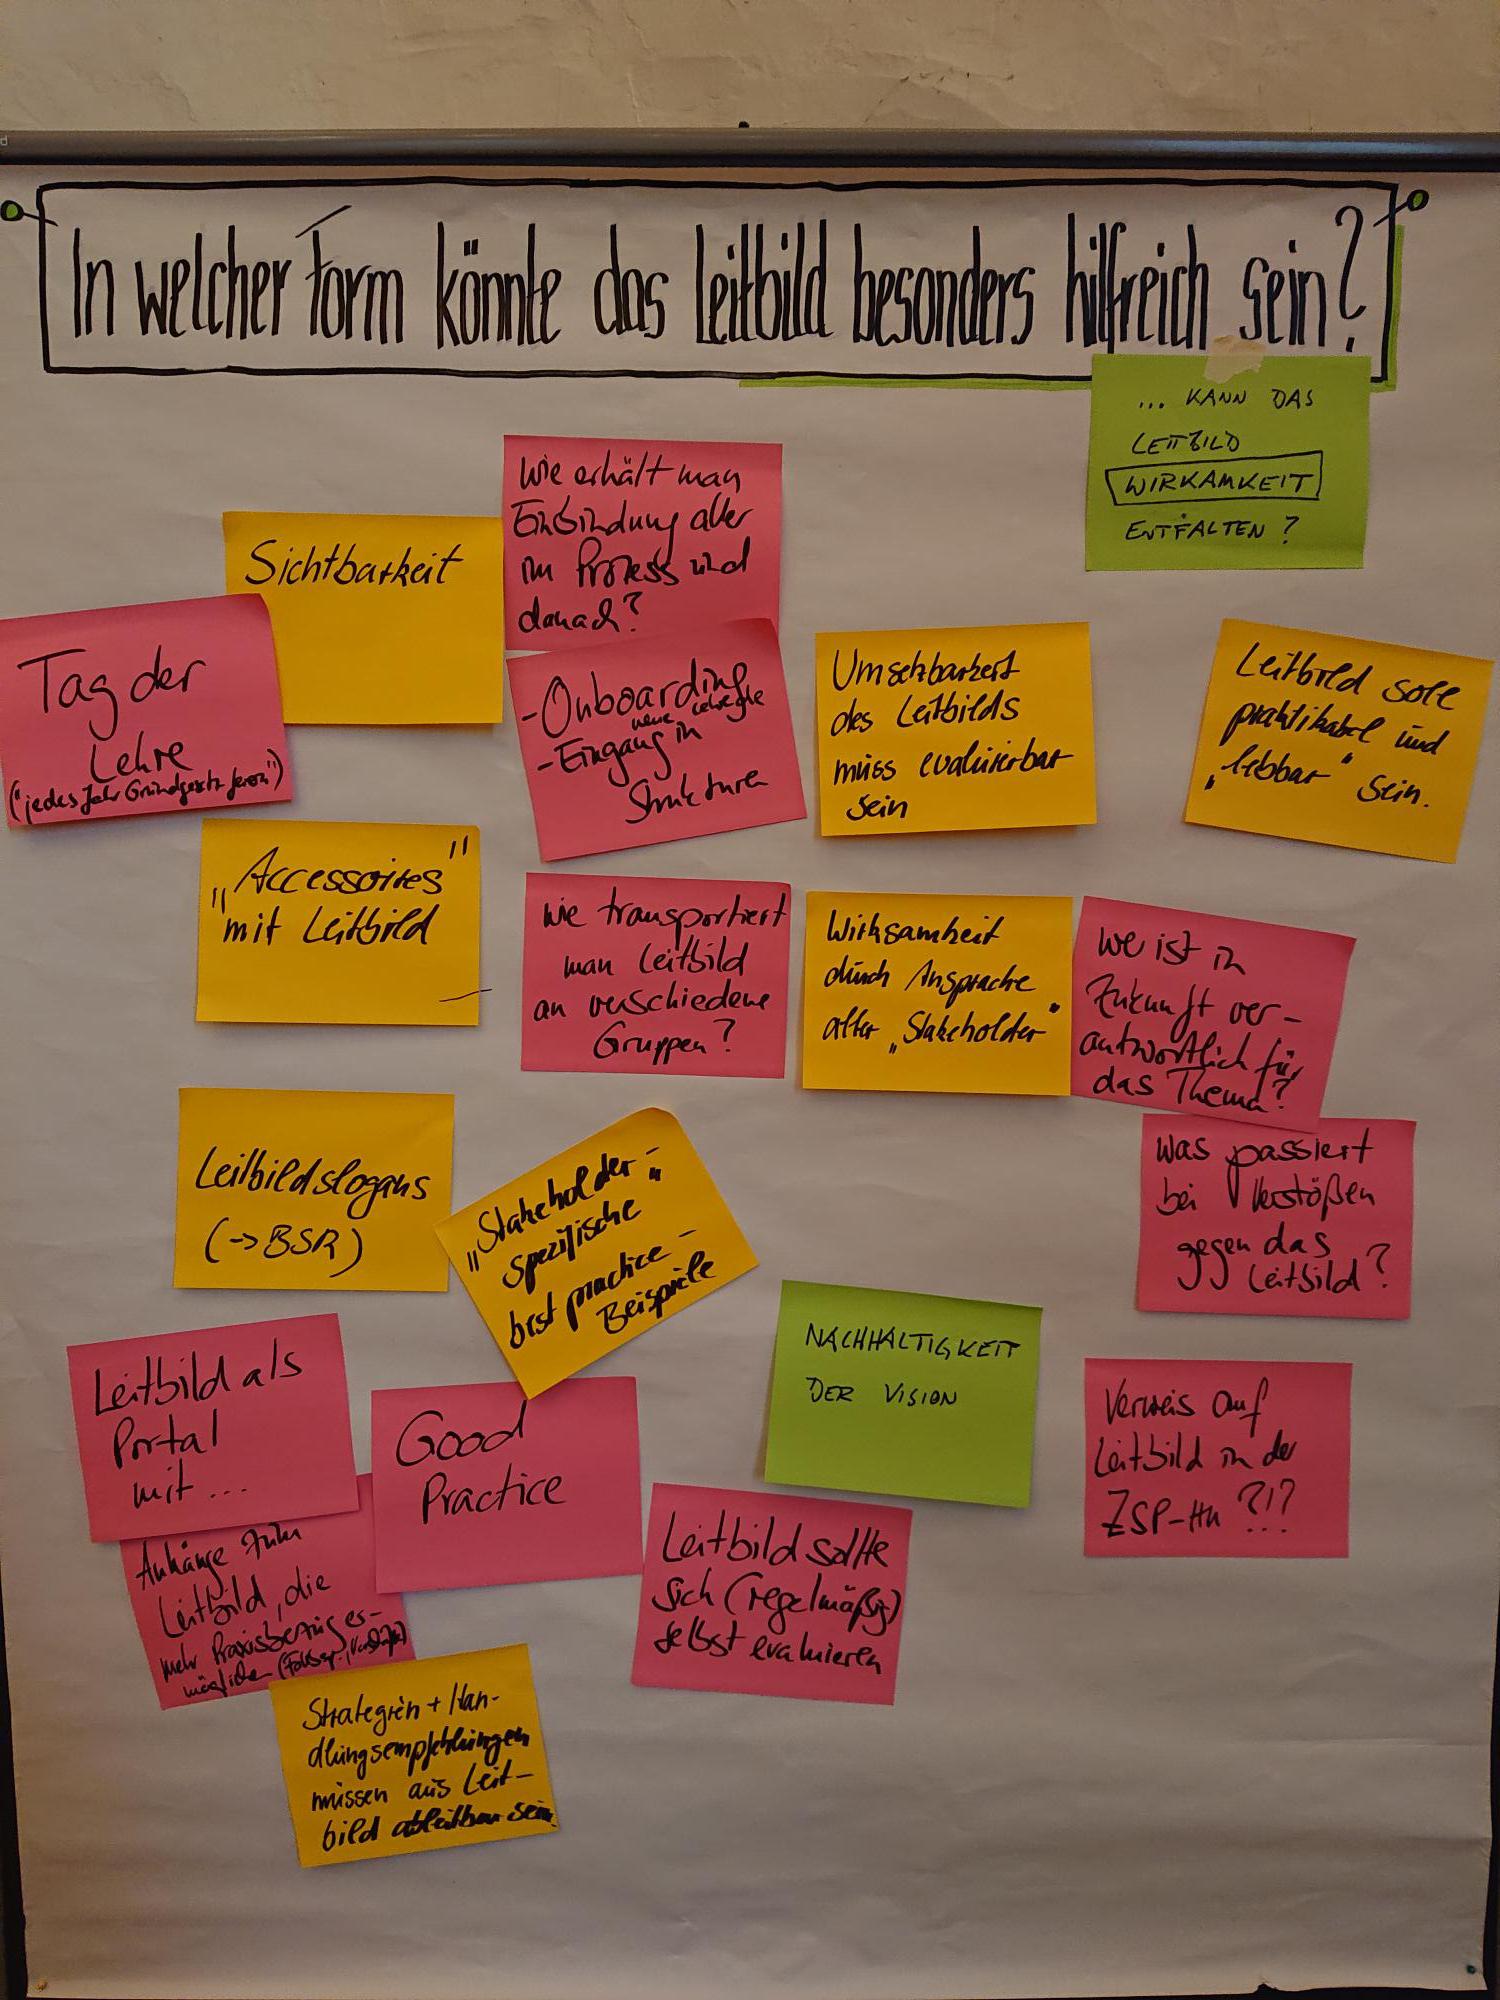 In welcher Form könnte das Leitbild besonders hilfreich sein?
... KANN DAS
LEITBILD
WIRKAMKEIT
ENTFALTEN?
Wie erhält man
Einbindung aller
im Prozess und
danach?
Sichtbarkeit
Tag der
Lehre
("jedes Jahr Grundgesetz lesen")
- Onboarding
neue
- Eingang in
Strukturen
Umsetzbarkeit
des Leitbilds
muss evaluierbar
sein
Leitbild soll
praktikabel und
„lebbar" sein.
„Accessoires"
mit Leitbild
Wie transportiert
man Leitbild
an verschiedene
Gruppen?
Wirksamkeit
durch Ansprache
aller „Stakeholder"
Wer ist in
Zukunft ver-
antwortlich für
das Thema?
Leitbildslogans
(→ BSR)
„Stakeholder-"
spezifische
best practice-
Beispiele
Was passiert
bei Verstößen
gegen das
Leitbild?
Leitbild als
Portal
mit ...
Good
Practice
NACHHALTIGKEIT
DER VISION
Verweis auf
Leitbild in der
ZSP-HU ?!?
Anhänge zum
Leitbild, die
mehr Praxisbezug er-
möglichen
Leitbild sollte
sich (regelmäßig)
selbst evaluieren
Strategien + Han-
dlungsempfehlungen
müssen aus Leit-
bild ableitbar sein